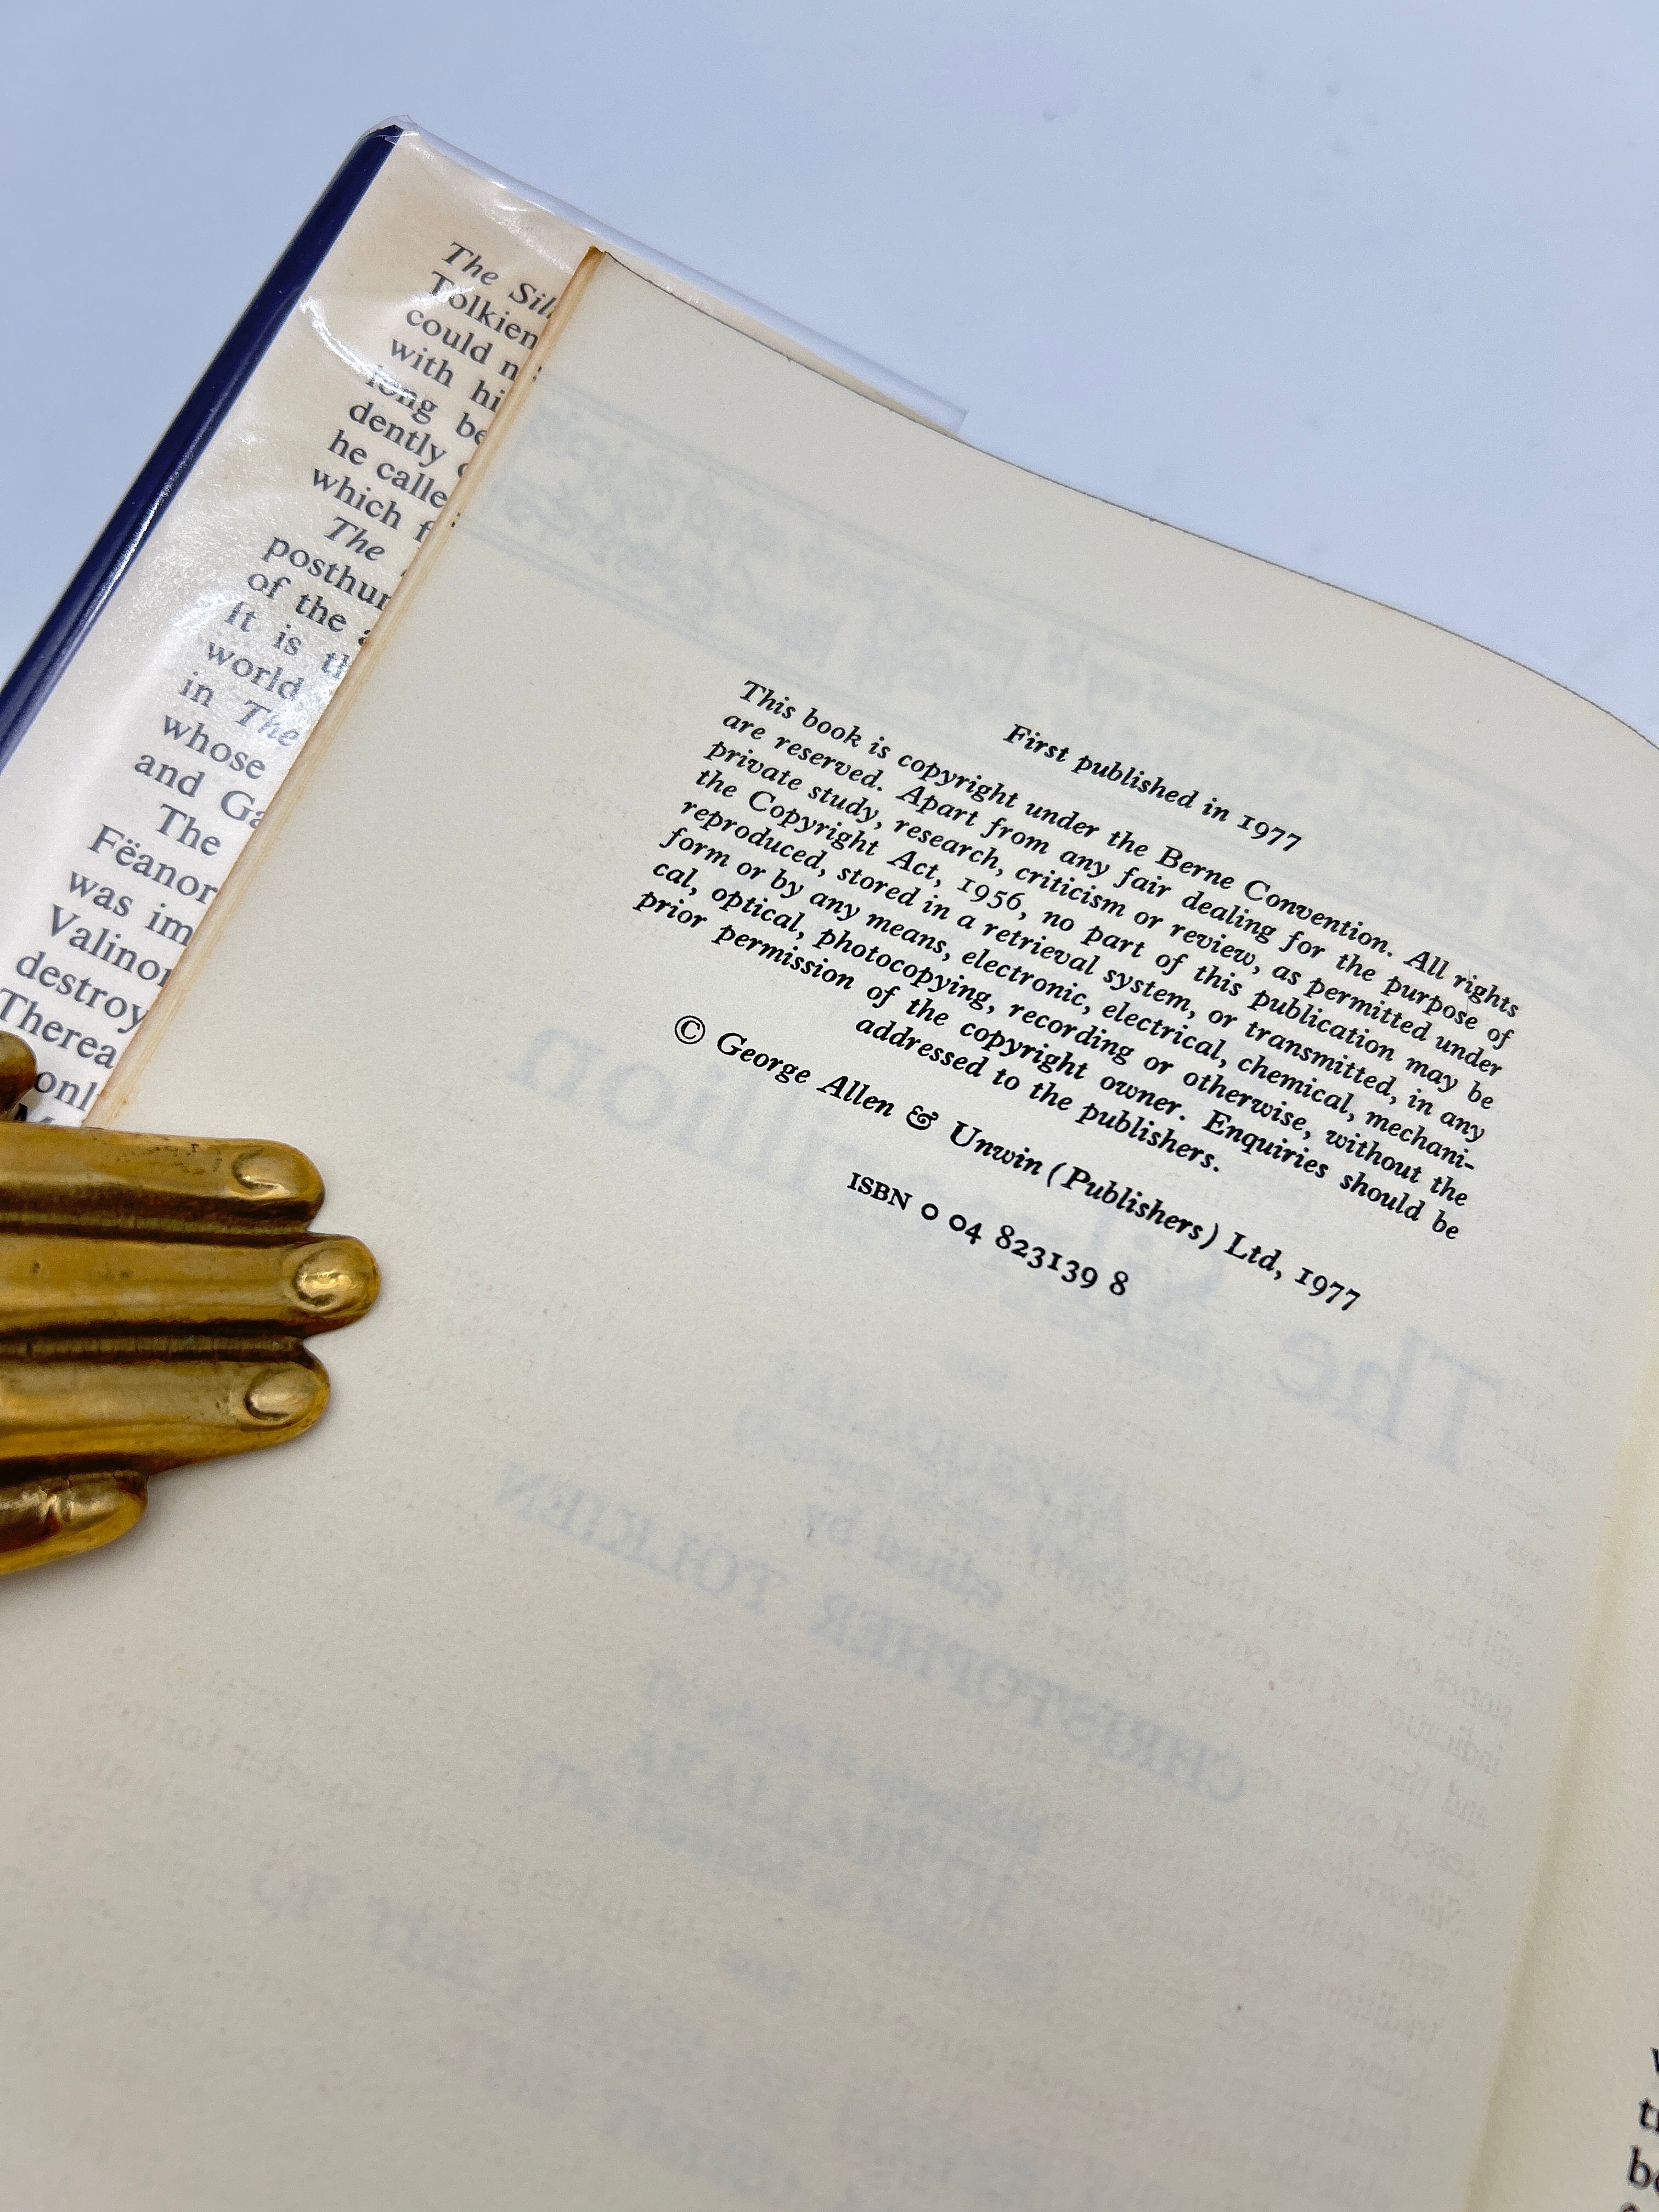 The Sil
Tolkien
could n
with hi
long be
dently
he calle
which f
The
posthum
of the a
It is th
world
in The
whose
and Ga
The
Fëanor
was im
Valinor
destroy
Therea
onl
First published in 1977
This book is copyright under the Berne Convention. All rights
are reserved. Apart from any fair dealing for the purpose of
private study, research, criticism or review, as permitted under
the Copyright Act, 1956, no part of this publication may be
reproduced, stored in a retrieval system, or transmitted, in any
form or by any means, electronic, electrical, chemical, mechani-
cal, optical, photocopying, recording or otherwise, without the
prior permission of the copyright owner. Enquiries should be
addressed to the publishers.
© George Allen & Unwin (Publishers) Ltd, 1977
ISBN 0 04 823139 8
The Silmarillion
edited by
CHRISTOPHER TOLKIEN